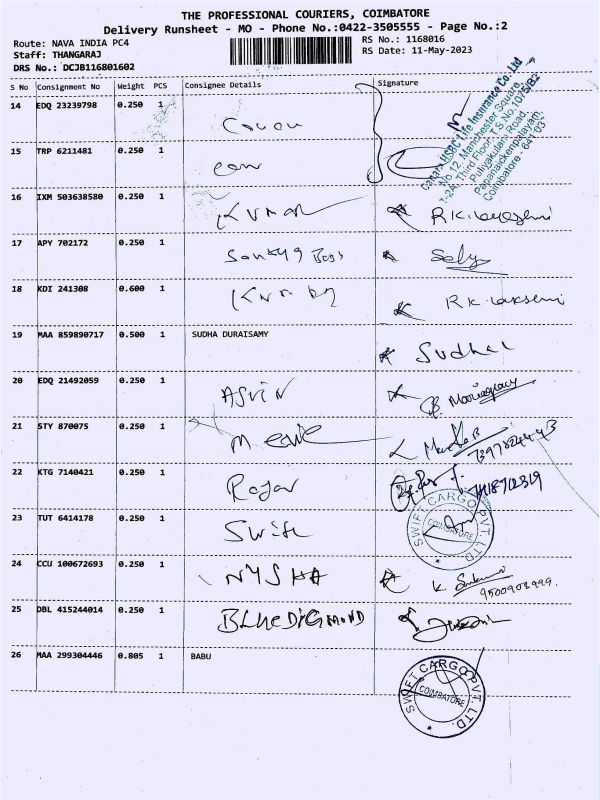 THE PROFESSIONAL COURIERS, COIMBATORE
Delivery Runsheet - MO - Phone No.:0422-3505555 - Page No.:2
Route: NAVA INDIA PC4 RS No.: 1168016
Staff: THANGARAJ RS Date: 11-May-2023
DRS No.: DCJB116801602
S No Consignment No Weight PCS Consignee Details Signature
14 EDQ 23239798 0.250 1
Canara HSBC Life Insurance Co.Ltd
No.12, Manchester Square,
Third Floor, T.S.No.
Puliyakulam Road,
Papanaickenpalayam,
Coimbatore - 641 037
15 TRP 6211481 0.250 1
16 IXM 503638580 0.250 1 Kumar
17 APY 702172 0.250 1
18 KDI 241308 0.600 1
19 MAA 859890717 0.500 1 SUDHA DURAISAMY
20 EDQ 21492059 0.250 1 ASVIN
21 STY 870075 0.250 1
22 KTG 7140421 0.250 1
23 TUT 6414178 0.250 1 Swift SWIFT CARGO PVT. LTD. COIMBATORE
24 CCU 100672693 0.250 1 NYSHA K
25 DBL 415244014 0.250 1 BLUEDIGMOND
26 MAA 299304446 0.805 1 BABU SWIFT CARGO PVT. LTD. COIMBATORE